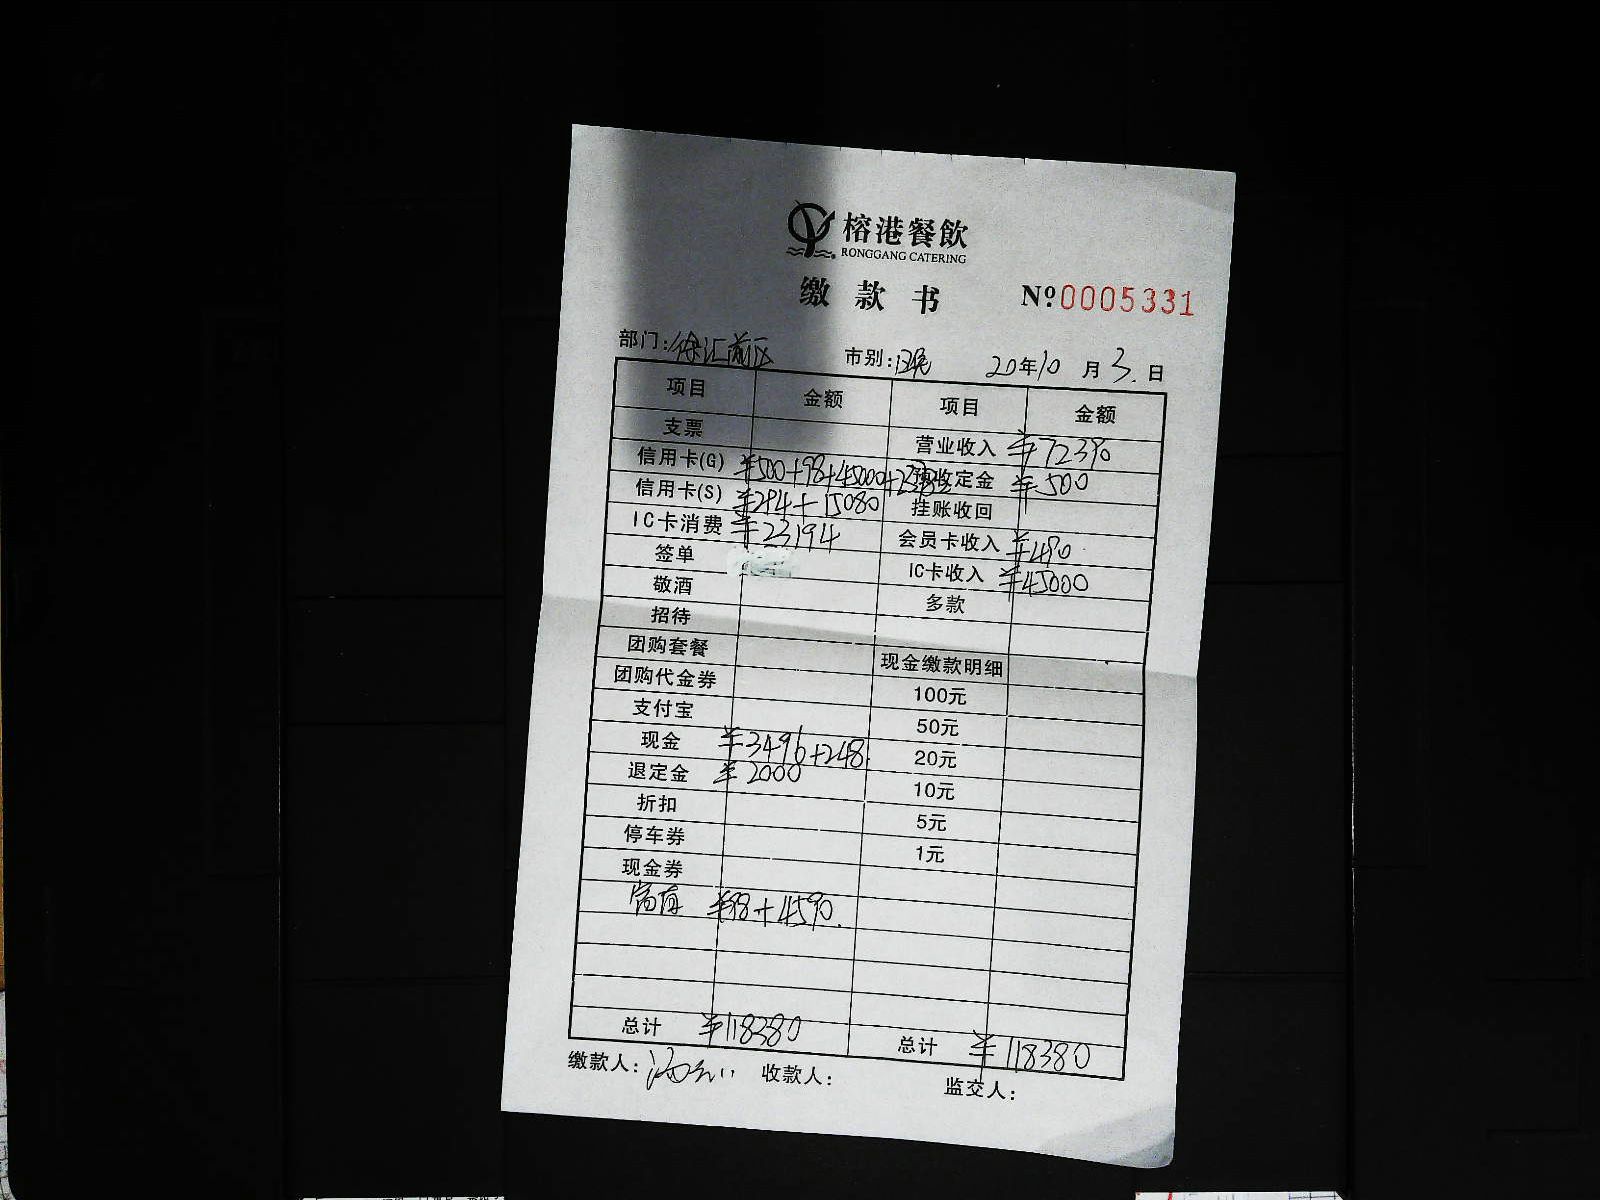 榕港餐飲
RONGGANG CATERING
缴款书 Nº0005331
部门:徐汇前区 市别: 20年10月3日
项目 金额 项目 金额
支票 营业收入 ¥72390
信用卡(G) ¥500+98+45000+23782 预收定金 ¥500
信用卡(S) ¥294+15080 挂账收回
IC卡消费 ¥23194 会员卡收入 ¥490
签单 IC卡收入 ¥45000
敬酒 多款
招待
团购套餐 现金缴款明细
团购代金券 100元
支付宝 50元
现金 ¥3496+248 20元
退定金 ¥2000 10元
折扣 5元
停车券 1元
现金券
¥98+4590.
总计 ¥118380 总计 ¥118380
缴款人: 收款人: 监交人: